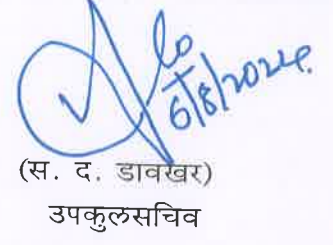 6/8/2024
(स. द. डावखर)
उपकुलसचिव